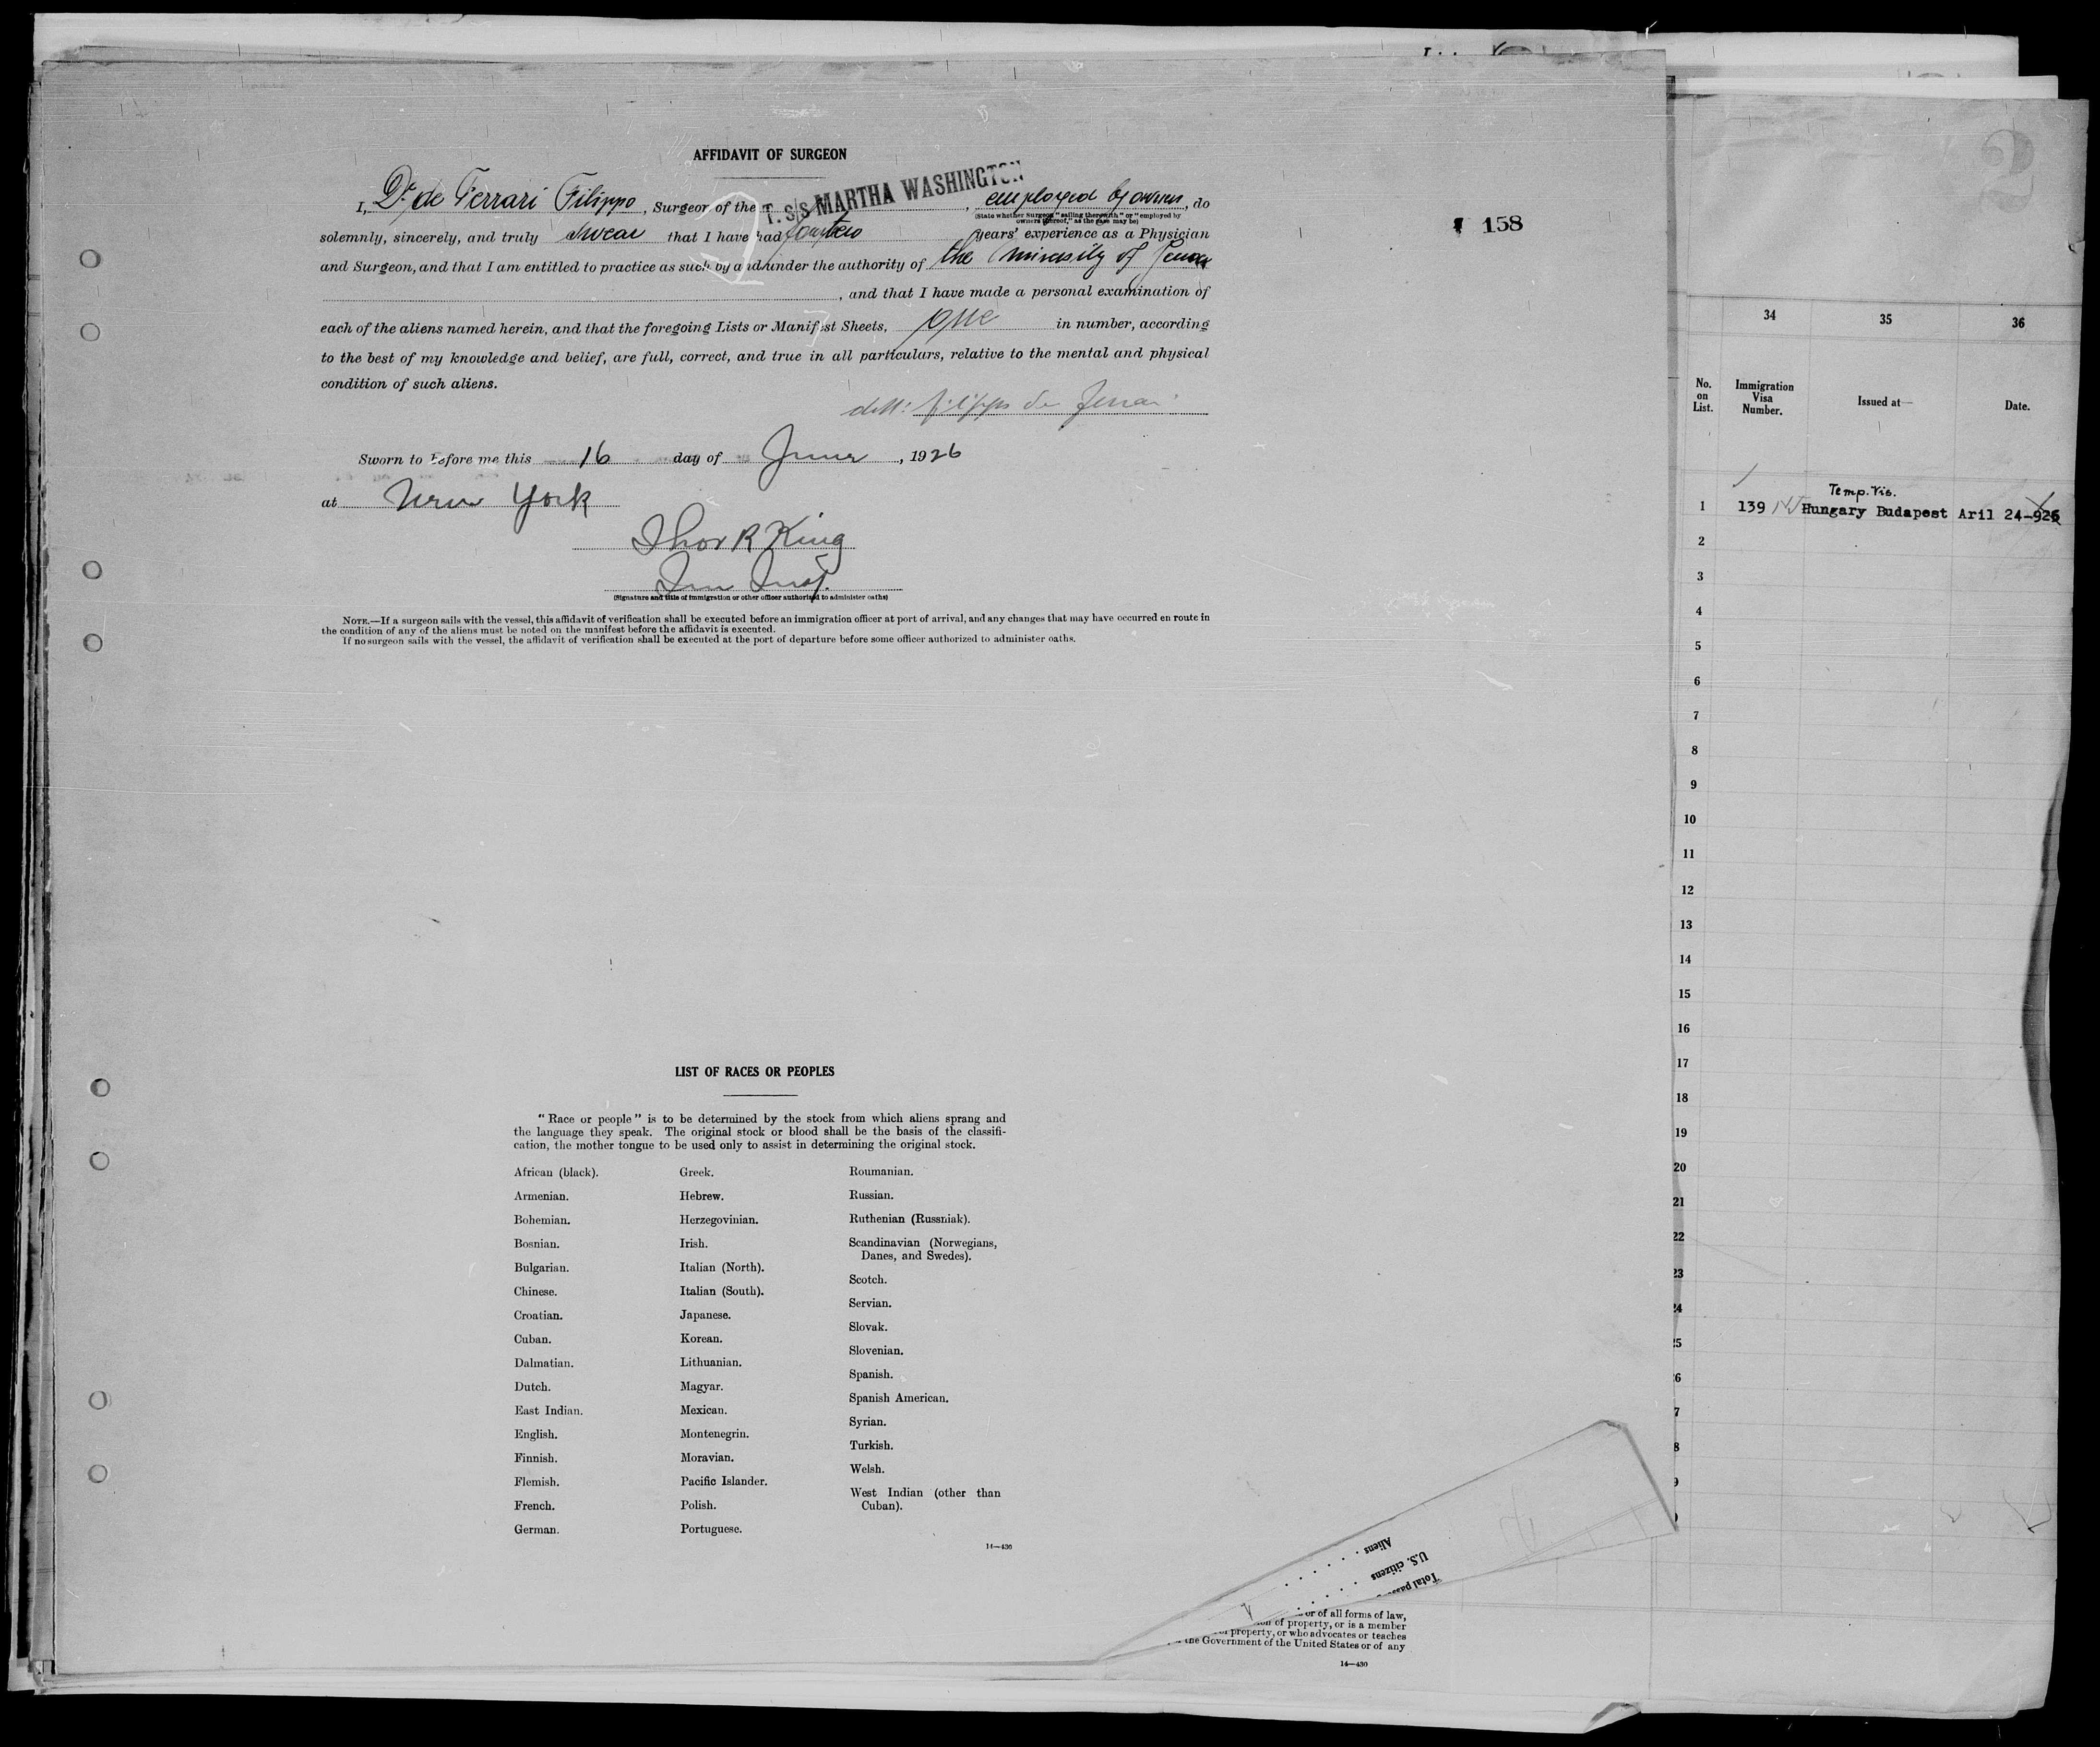 AFFIDAVIT OF SURGEON
I, Dr. de Ferrari Filippo, Surgeon of the T. S/S MARTHA WASHINGTON, employed by owners, do
(State whether Surgeon "sailing therewith" or "employed by
owners thereof," as the case may be)
solemnly, sincerely, and truly swear that I have had years' experience as a Physician
and Surgeon, and that I am entitled to practice as such by and under the authority of the University of Genoa
, and that I have made a personal examination of
each of the aliens named herein, and that the foregoing Lists or Manifest Sheets, one in number, according
to the best of my knowledge and belief, are full, correct, and true in all particulars, relative to the mental and physical
condition of such aliens.
dott: filippo de ferrari
Sworn to before me this 16 day of June, 1926
at New York
Thos R King
Im Insp.
(Signature and title of immigration or other officer authorized to administer oaths)
NOTE.—If a surgeon sails with the vessel, this affidavit of verification shall be executed before an immigration officer at port of arrival, and any changes that may have occurred en route in
the condition of any of the aliens must be noted on the manifest before the affidavit is executed.
If no surgeon sails with the vessel, the affidavit of verification shall be executed at the port of departure before some officer authorized to administer oaths.
158
LIST OF RACES OR PEOPLES
"Race or people" is to be determined by the stock from which aliens sprang and
the language they speak. The original stock or blood shall be the basis of the classifi-
cation, the mother tongue to be used only to assist in determining the original stock.
African (black).
Armenian.
Bohemian.
Bosnian.
Bulgarian.
Chinese.
Croatian.
Cuban.
Dalmatian.
Dutch.
East Indian.
English.
Finnish.
Flemish.
French.
German.
Greek.
Hebrew.
Herzegovinian.
Irish.
Italian (North).
Italian (South).
Japanese.
Korean.
Lithuanian.
Magyar.
Mexican.
Montenegrin.
Moravian.
Pacific Islander.
Polish.
Portuguese.
Roumanian.
Russian.
Ruthenian (Russniak).
Scandinavian (Norwegians,
Danes, and Swedes).
Scotch.
Servian.
Slovak.
Slovenian.
Spanish.
Spanish American.
Syrian.
Turkish.
Welsh.
West Indian (other than
Cuban).
14—430
Aliens
U.S. citizens
Total pass
or of all forms of law,
of property, or is a member
property, or who advocates or teaches
the Government of the United States or of any
14—430
2
34 35 36
No.
on
List.
Immigration
Visa
Number.
Issued at—
Date.
Temp. Vis.
1 139 Hungary Budapest Aril 24-926
2
3
4
5
6
7
8
9
10
11
12
13
14
15
16
17
18
19
20
21
22
23
24
25
6
7
8
9